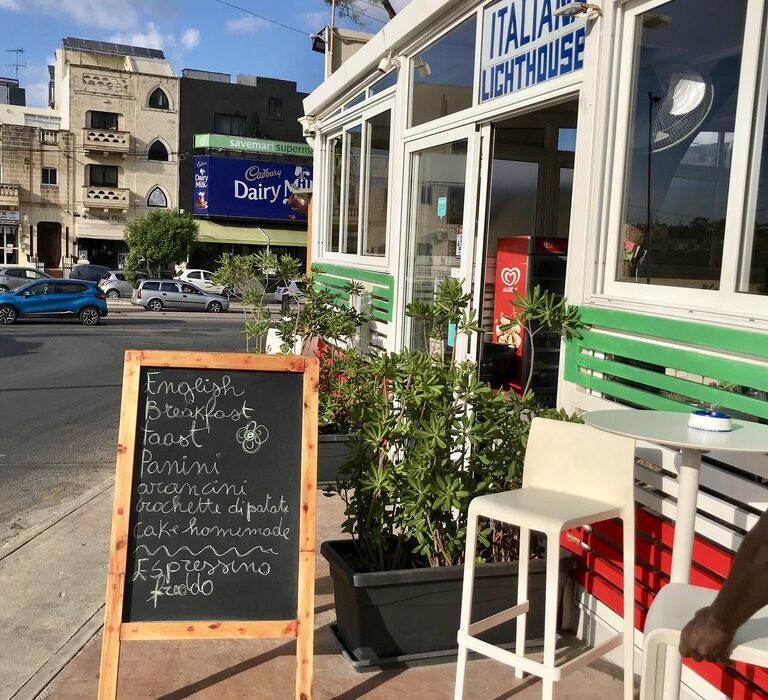 ITALIAN
LIGHTHOUSE
savemart supermar
Cadbury
Dairy Milk
Cadbury
Dairy
Milk
ALGIDA
English
Breakfast
Taast
Panini
arancini
crochette di patate
cake homemade
Espressino
freddo